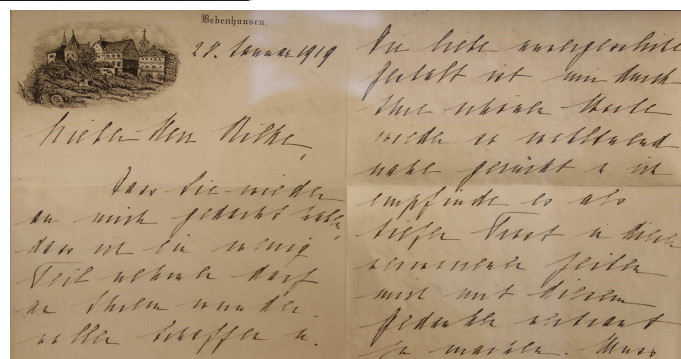 Bebenhausen,
28. Januar 1919
Lieber Herr Rilke,
Dass Sie wieder
an mich gedacht haben,
dass ich ein wenig
Teil nehmen darf
an Ihrem wunder-
vollen Schaffen u.
Die liebe unvergessliche
Gestalt ist mir durch
Ihre schönen Worte
wieder so wohltuend
nahe gerückt u ich
empfinde es als
tiefen Trost in diesen
verworrenen Zeiten
mich mit diesem
Gedanken vertraut
zu machen.